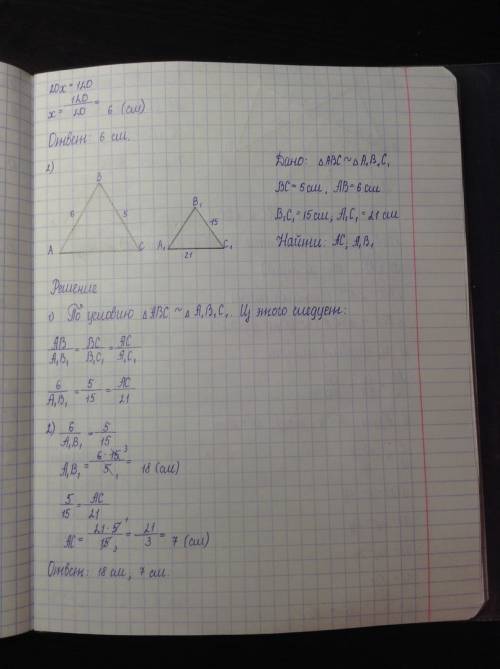 20x = 120
x = 120/20 = 6 (см)
Ответ: 6 см.
2)
B
6 5
A C
B₁
15
A₁ C₁
21
Дано: △ABC ~ △A₁B₁C₁
BC = 5 см, AB = 6 см
B₁C₁ = 15 см, A₁C₁ = 21 см
Найти: AC, A₁B₁
Решение
1) По условию △ABC ~ △A₁B₁C₁. Из этого следует:
AB/A₁B₁ = BC/B₁C₁ = AC/A₁C₁
6/A₁B₁ = 5/15 = AC/21
2) 6/A₁B₁ = 5/15
A₁B₁ = 6·15³/5₁ = 18 (см)
5/15 = AC/21
AC = 21·5¹/15₃ = 21/3 = 7 (см)
Ответ: 18 см, 7 см.